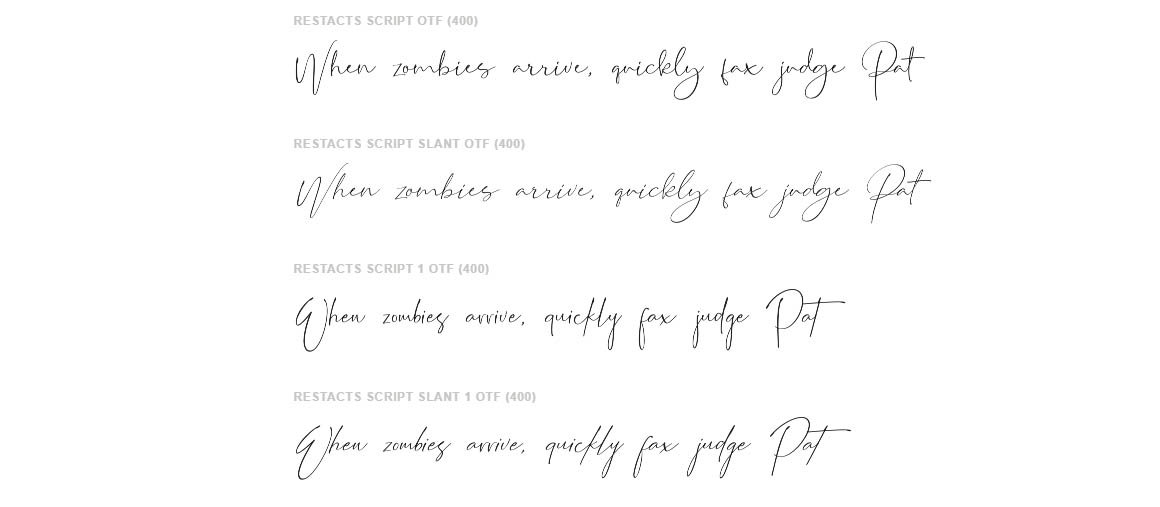 RESTACTS SCRIPT OTF (400)
When zombies arrive, quickly fax judge Pat
RESTACTS SCRIPT SLANT OTF (400)
When zombies arrive, quickly fax judge Pat
RESTACTS SCRIPT 1 OTF (400)
When zombies arrive, quickly fax judge Pat
RESTACTS SCRIPT SLANT 1 OTF (400)
When zombies arrive, quickly fax judge Pat